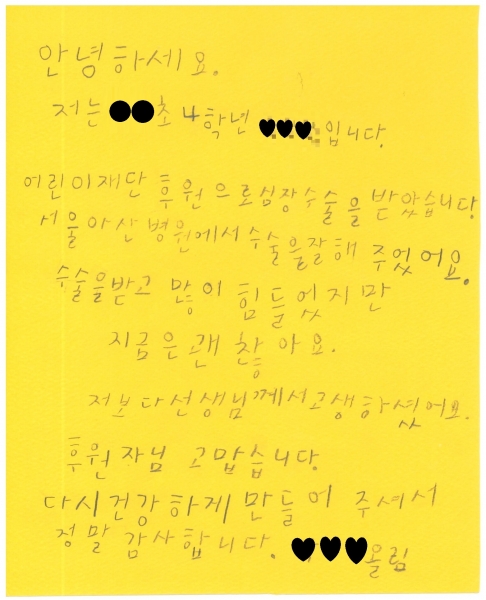 안녕하세요.
저는 ●●초 4학년 ♥♥♥입니다.
어린이재단 후원으로심장수술을 받았습니다
서울아산 병원에서 수술을잘해 주었어요.
수술을받고 많이 힘들었지만
지금은괜찮아요.
저보다선생님께서고생하셨어요.
후원자님 고맙습니다.
다시건강하게 만들어 주셔서
정말 감사합니다. ♥♥♥올림